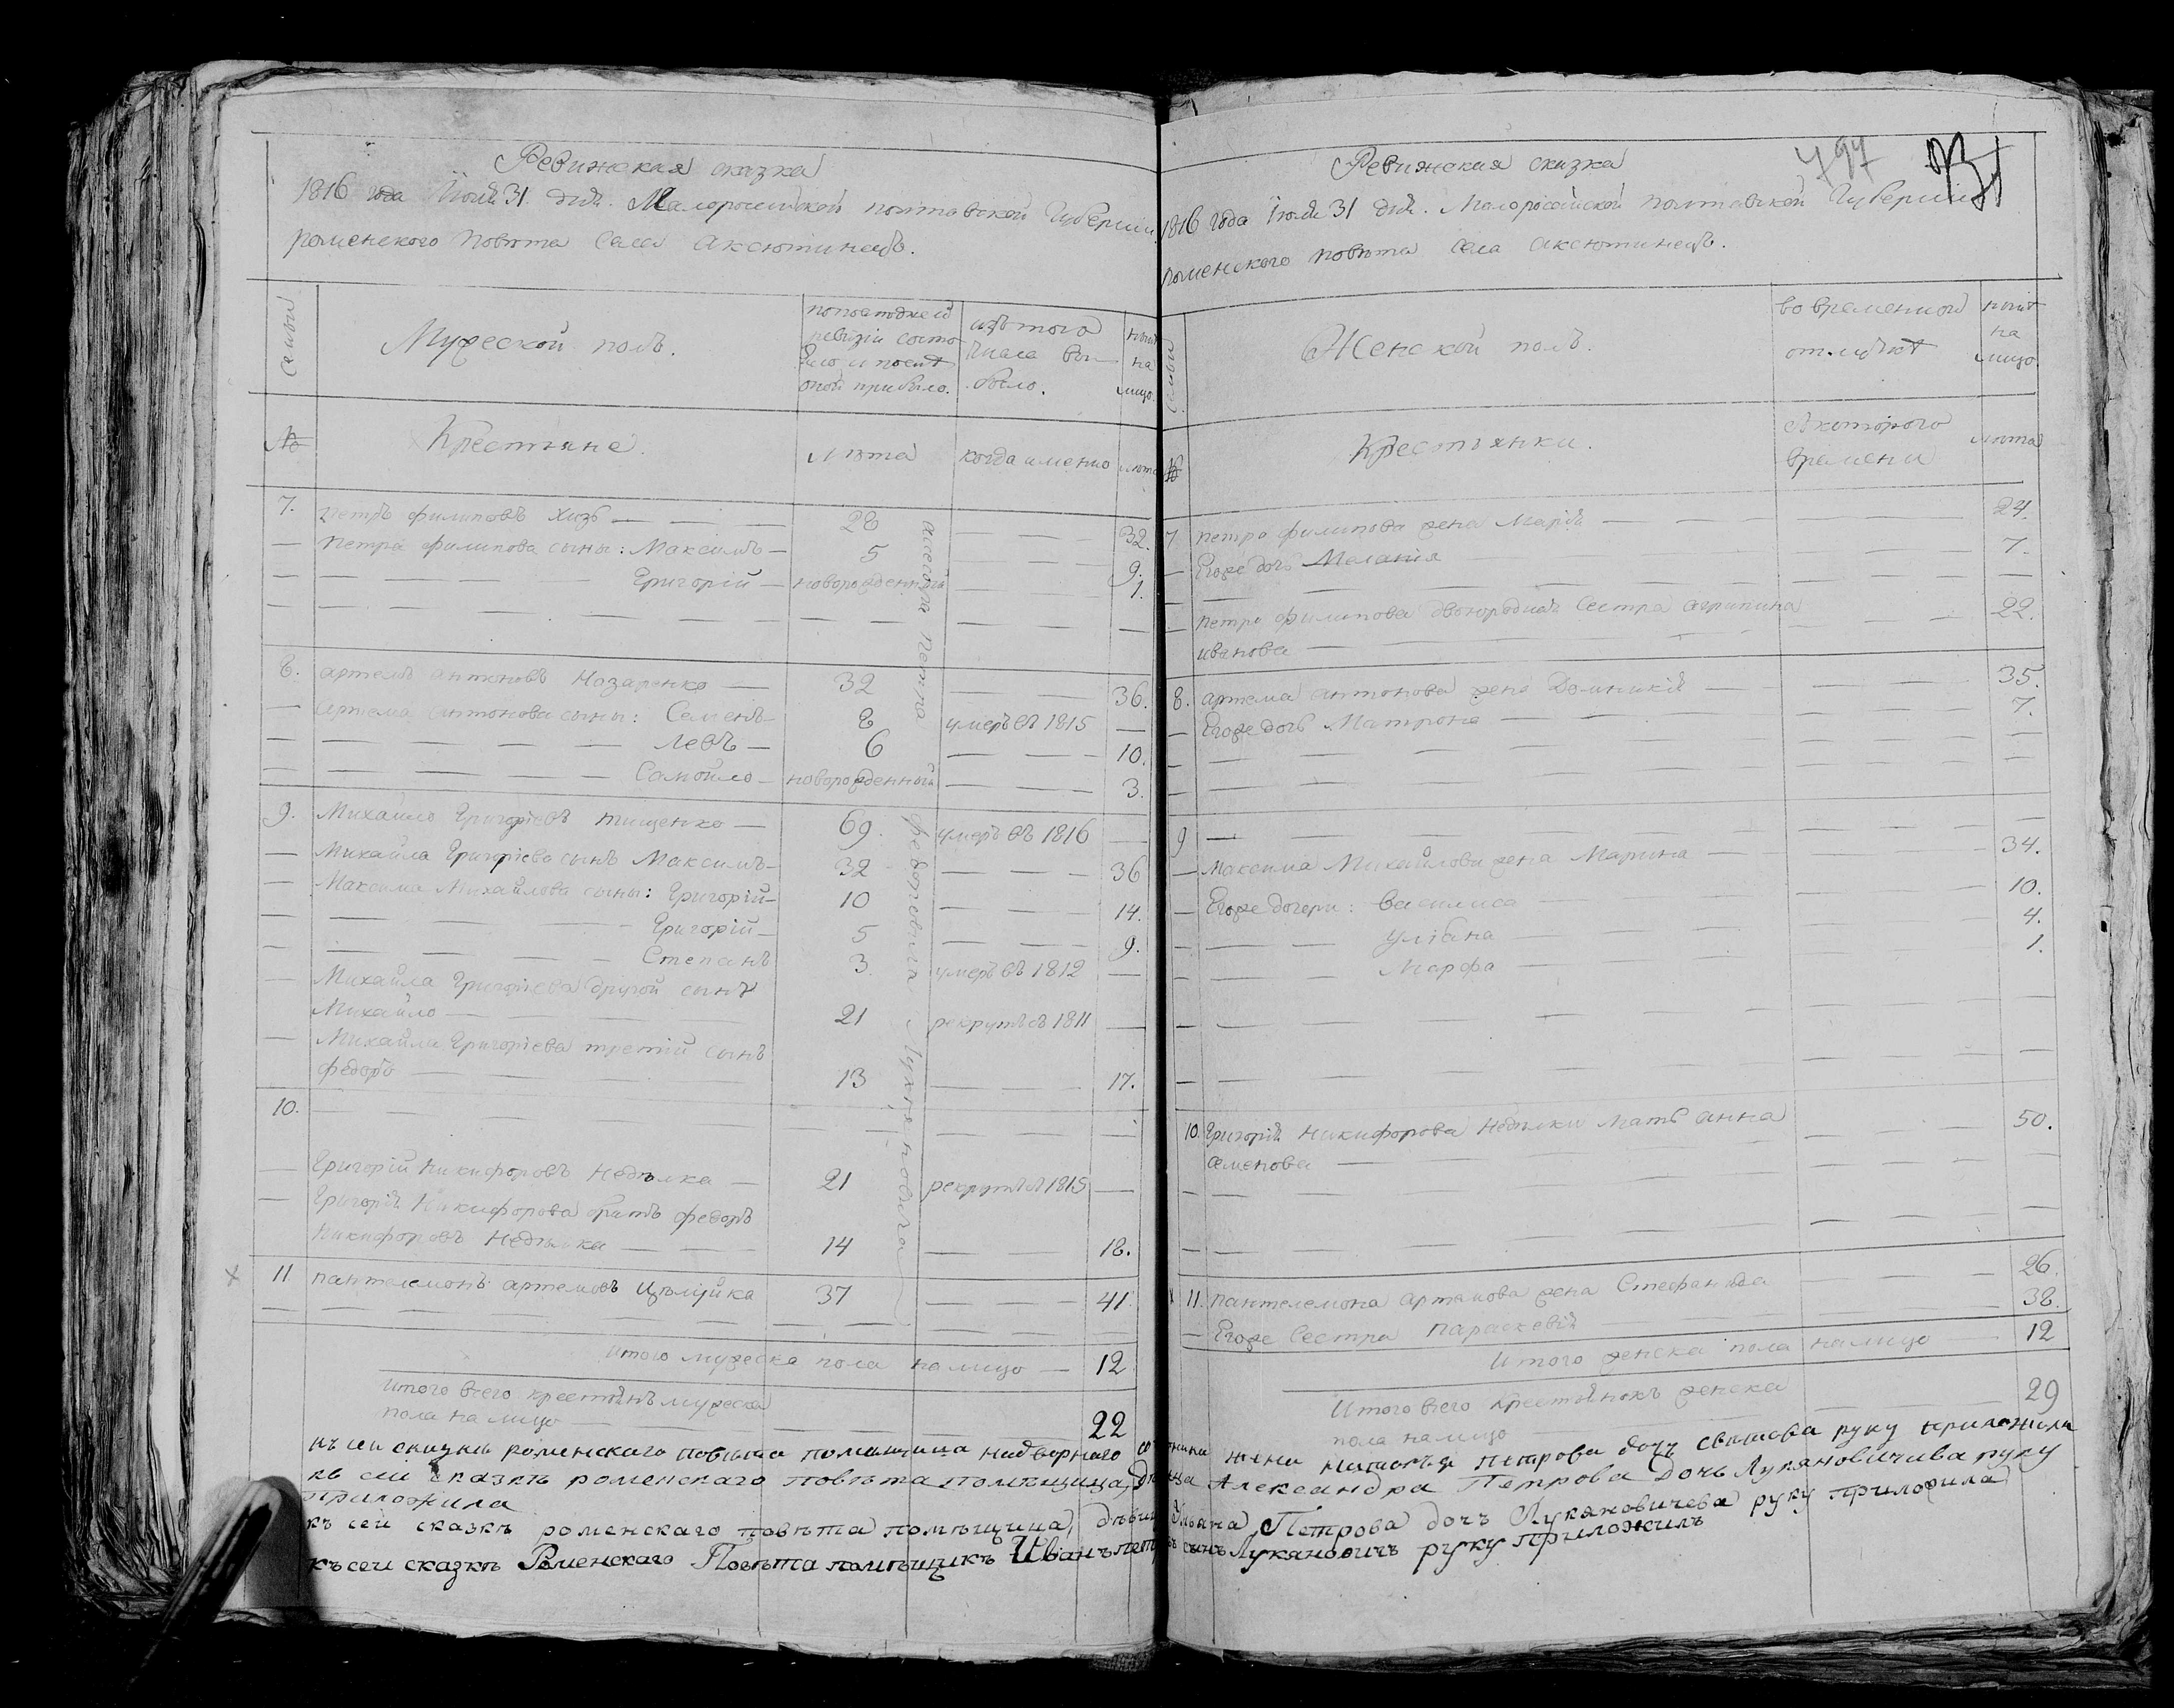 Ревижская сказка
1816 года Июля 31 дня. Малоросийской полтавской Губернии
роменского повѣта Села Аксютинецъ.
Семьи
Мужеской полъ.
по последней ревизіи состо яло и послѣ оной прибыло.
изъ того числа вы было.
нынѣ на лицо.
№
Крестьяне.
Лѣта
когда именно
лѣта
7. Петръ филиповъ Хизь — 28 — 32.
Петра филипова сыны: Максимъ — 5 — 9.
Григорій — новорожденный — 1.
8. Артемъ Антоновъ Назаренко — 32 — 36.
Артема Антонова сыны: Семенъ — 8 умеръ въ 1815 —
Левъ — 6 — 10.
Самойло — новорожденный — 3.
9. Михайло Григоріевъ тищенко — 69. умеръ въ 1816 —
Михайла Григоріева сынъ Максимъ — 32 — 36
Максима Михайлова сыны: Григорій — 10 — 14.
Григорій — 5 — 9.
Степанъ 3. умеръ въ 1812 —
Михайла Григоріева другой сынъ
Михайло — 21 рекрутъ въ 1811 —
Михайла Григоріева третій сынъ
федоръ — 13 — 17.
10.
Григорій Никифоровъ Недѣлка — 21 рекрутъ въ 1815 —
Григорія Никифорова братъ федоръ
Никифоровъ Недѣлка — 14 — 18.
11 пантелемонъ артемовъ Цѣлуйка 37 — 41.
Итого мужеска пола на лицо — 12
Итого всего крестьянъ мужеска
пола на лицо — 22
Ревижская сказка
797
1816 года Июля 31 дня. Малоросійской полтавской Губерніи
роменского повѣта села аксютинецъ.
Семьи
Женской полъ.
во временной отлучкѣ
нынѣ на лицо.
№
Крестьянки.
съ которого времени
лѣта
7. петра филипова жена Марія — 24.
Егоже дочь Маланія — 7.
петра филипова двоюродная Сестра агрипина
иванова — 22.
8. артема антонова жена Домникія — 35.
Егоже дочь Матрона — 7.
9 —
Максима Михайлова жена Марина — 34.
Егоже дочери: Василиса — 10.
Уліана — 4.
Марфа — 1.
10. Григорія Никифорова Недѣлки мать анна
Семенова — 50.
11. пантелемона артемова жена Стефанида — 26.
Егоже Сестра параскевія — 38.
Итого женска пола на лицо — 12
Итого всего крестьянокъ женска
пола на лицо 29
къ сеи сказкѣ роменскаго повѣта помѣщица надворного совѣтника жена Петрова дочь руку приложила
къ сеи сказкѣ роменскаго повѣта помѣщица, дѣвица Александра Петрова дочь Лукяновичива руку
приложила
къ сеи сказкѣ роменскаго повѣта помѣщица, дѣвица Петрова дочь Лукяновичева руку приложила
къ сеи сказкѣ Роменскаго Повѣта помѣщикъ Иванъ петровъ сынъ Лукяновичъ руку приложилъ